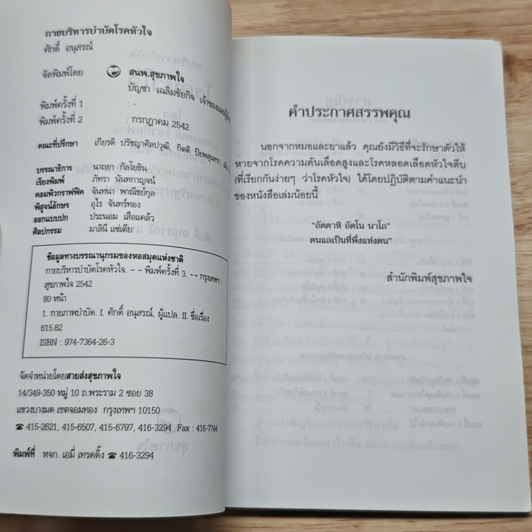 กายบริหารบำบัดโรคหัวใจ
ศักดิ์ อนุสรณ์
จัดพิมพ์โดย สนพ.สุขภาพใจ
บัญชา เฉลิมชัยกิจ เจ้าของและผู้
พิมพ์ครั้งที่ 1 : -
พิมพ์ครั้งที่ 2 : กรกฎาคม 2542
คณะที่ปรึกษา เกียรติ ปรัชญาศิลปวุฒิ, กิตติ
บรรณาธิการ นาถยา กัลโยธิน
เรียงพิมพ์ ภัทรา นันทกาญจน์
คอมพิวกราฟฟิค จันทนา พาณิชย์กุล
พิสูจน์อักษร อุไร จันทร์ทอง
ออกแบบปก ประนอม เสือแคล้ว
ศิลปกรรม มาลินี แซ่เตีย
ข้อมูลทางบรรณานุกรมของหอสมุดแห่งชาติ
กายบริหารบำบัดโรคหัวใจ. - - พิมพ์ครั้งที่ 3. - - กรุงเทพฯ
สุขภาพใจ 2542
80 หน้า
1. กายภาพบำบัด. I. ศักดิ์ อนุสรณ์, ผู้แปล. II. ชื่อเรื่อง
615.82
ISBN : 974-7364-26-3
จัดจำหน่ายโดยสายส่งสุขภาพใจ
14/349-350 หมู่ 10 ถ.พระราม 2 ซอย 38
แขวงบางมด เขตจอมทอง กรุงเทพฯ 10150
☎ 415-2621, 415-6507, 415-6797, 416-3294 Fax : 416-7744
พิมพ์ที่ หจก. เอมี่ เทรดดิ้ง ☎ 416-3294
คำประกาศสรรพคุณ
นอกจากหมอและยาแล้ว คุณยังมีวิธีที่จะรักษาตัวให้
หายจากโรคความดันเลือดสูงและโรคหลอดเลือดหัวใจตีบ
(ที่เรียกกันง่ายๆ ว่าโรคหัวใจ) ได้โดยปฏิบัติตามคำแนะนำ
ของหนังสือเล่มน้อยนี้
"อัตตาหิ อัตโน นาโถ"
ตนแลเป็นที่พึ่งแห่งตน"
สำนักพิมพ์สุขภาพใจ